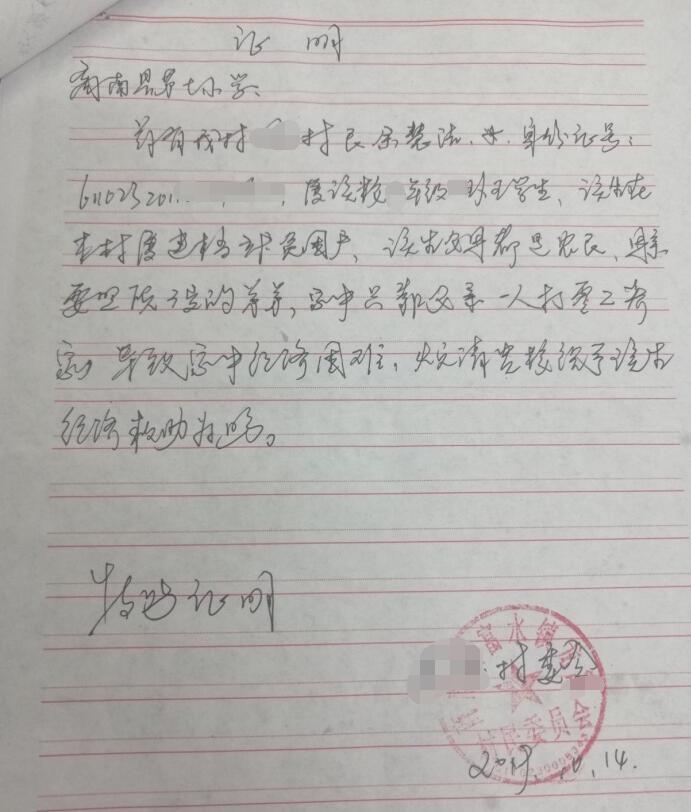 证 明
商南县第七小学：
兹有我村 村民余慧洁、女、身份证号：
611023201 ，属该校 年级 班学生、该生在
本村属建档立卡贫困户、该生父母都是农民、母亲
要照院 的弟弟，家中只靠父亲一人打零工养
家 导致家中经济困难， 请贵校给予该生
经济救助为盼。
特此证明
村委会
富水镇 村民委员会
2019.10.14.